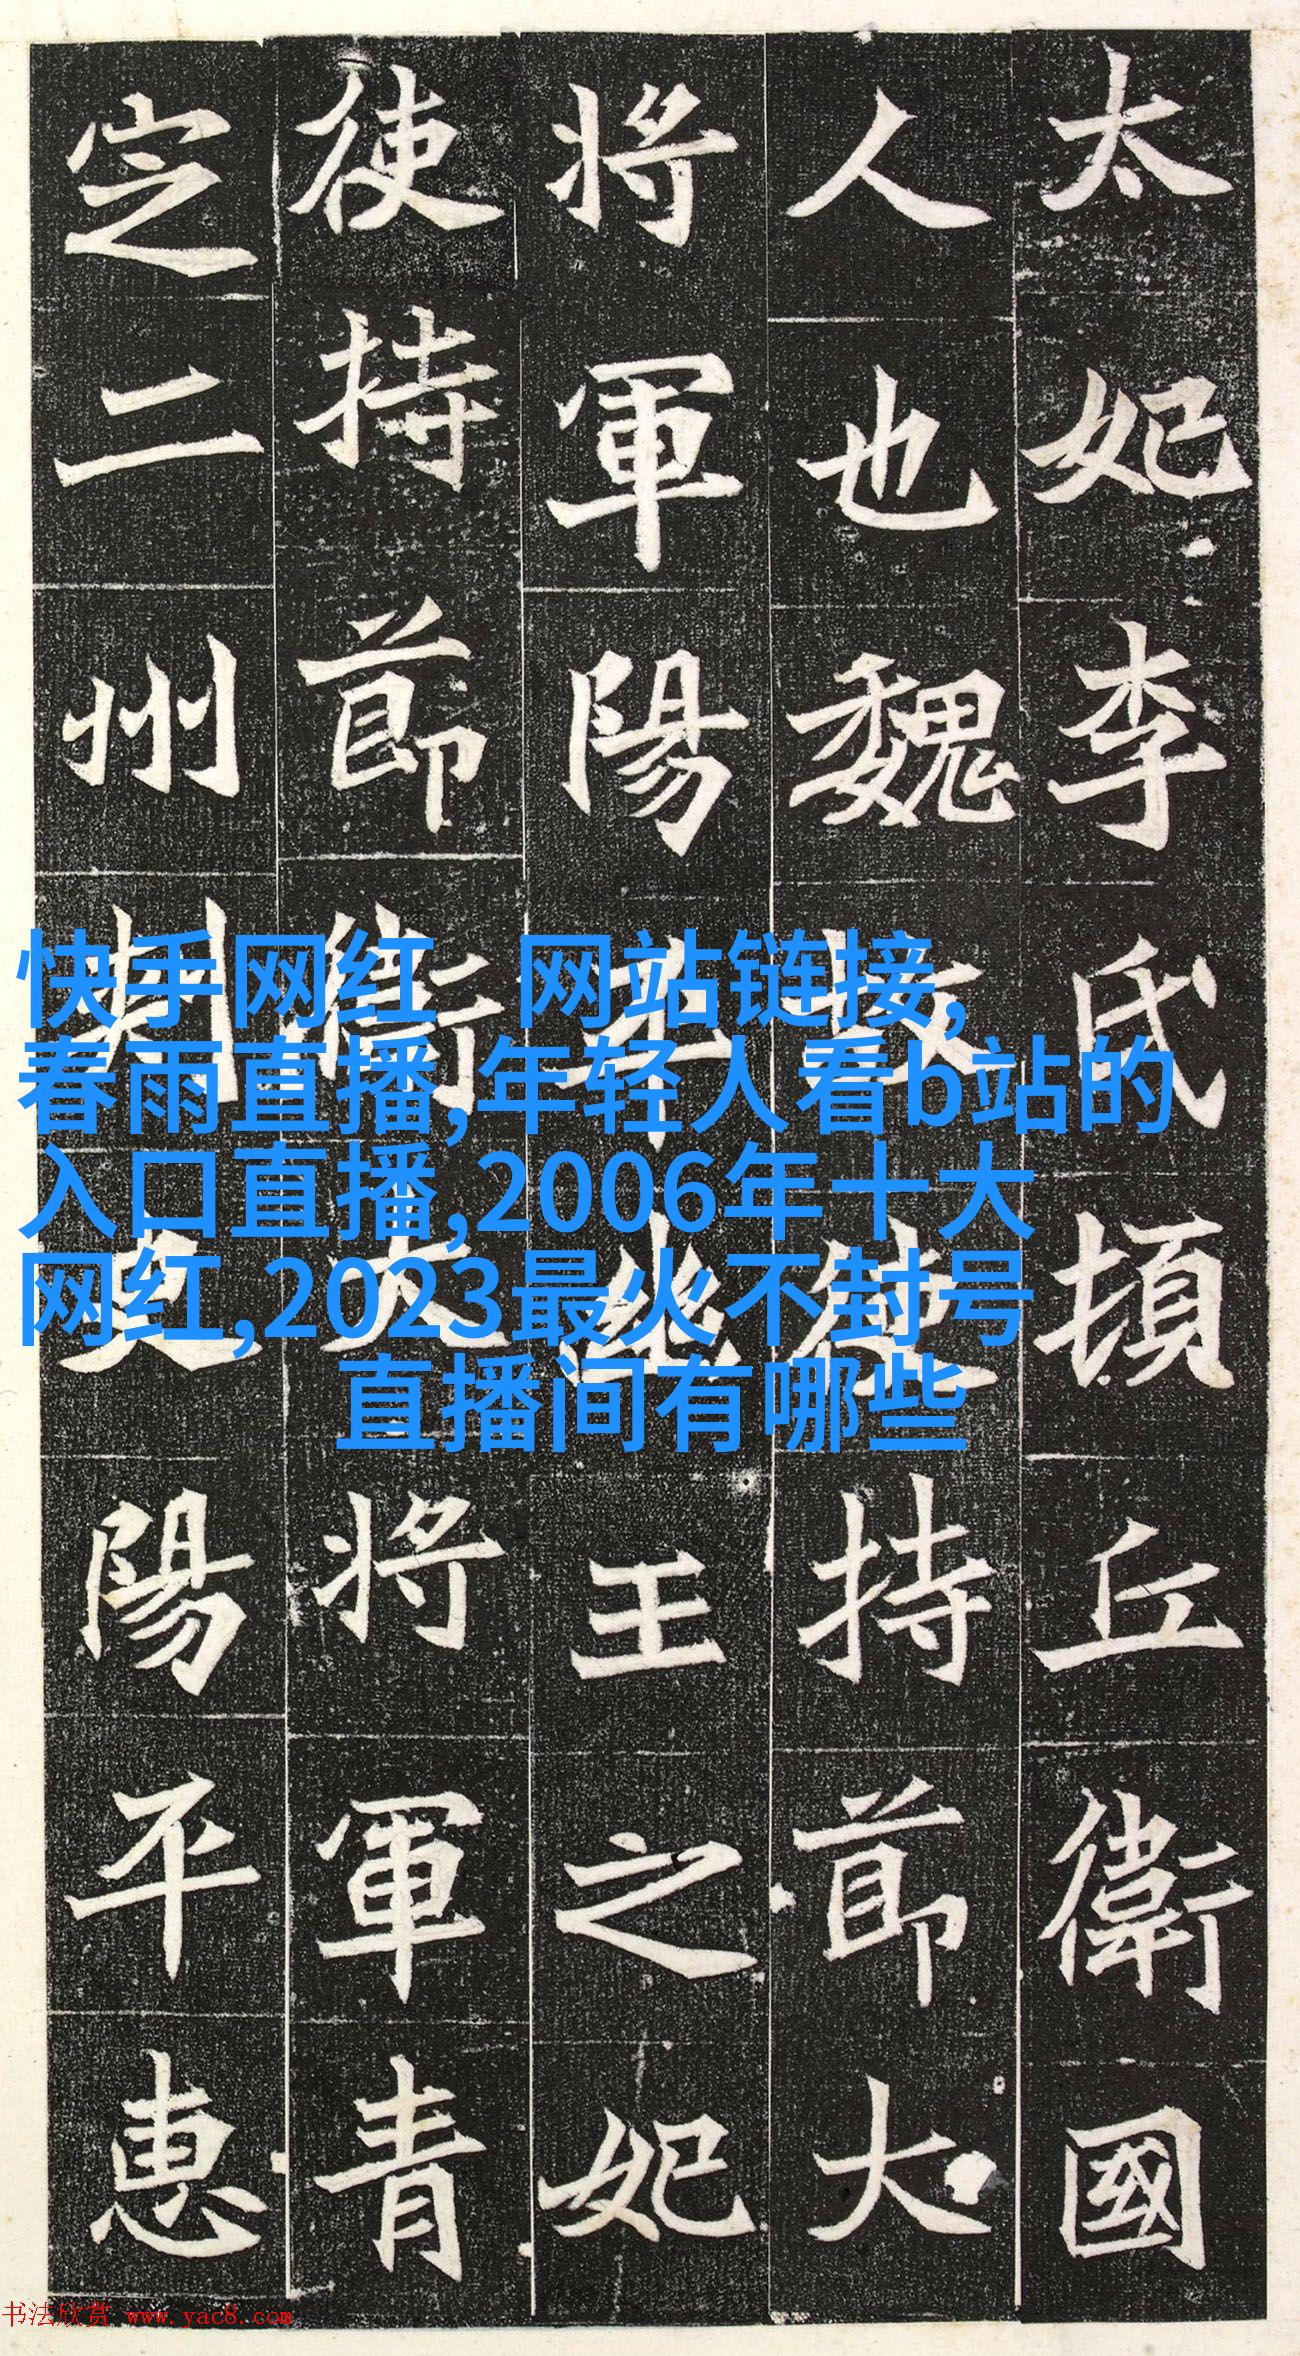 太妃李氏頓丘衛國
人也魏故使持節大
將軍陽平幽王之妃
使持節衛大將軍青
定二州刺史陽平惠
快手网红　网站链接,
春雨直播,年轻人看b站的
入口直播,2006年十大
网红,2023最火不封号
直播间有哪些
书法欣赏 www.yac8.com